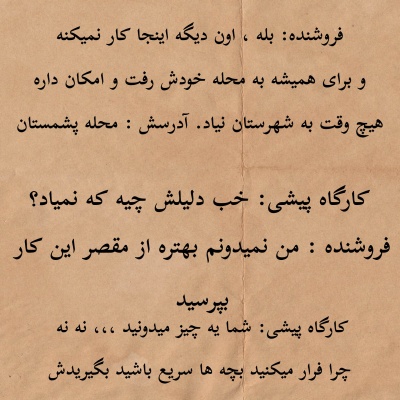 فروشنده: بله ، اون دیگه اینجا کار نمیکنه
و برای همیشه به محله خودش رفت و امکان داره
هیچ وقت به شهرستان نیاد. آدرسش : محله پشمستان
کارگاه پیشی: خب دلیلش چیه که نمیاد؟
فروشنده : من نمیدونم بهتره از مقصر این کار
بپرسید
کارگاه پیشی: شما یه چیز میدونید ،،، نه نه
چرا فرار میکنید بچه ها سریع باشید بگیریدش